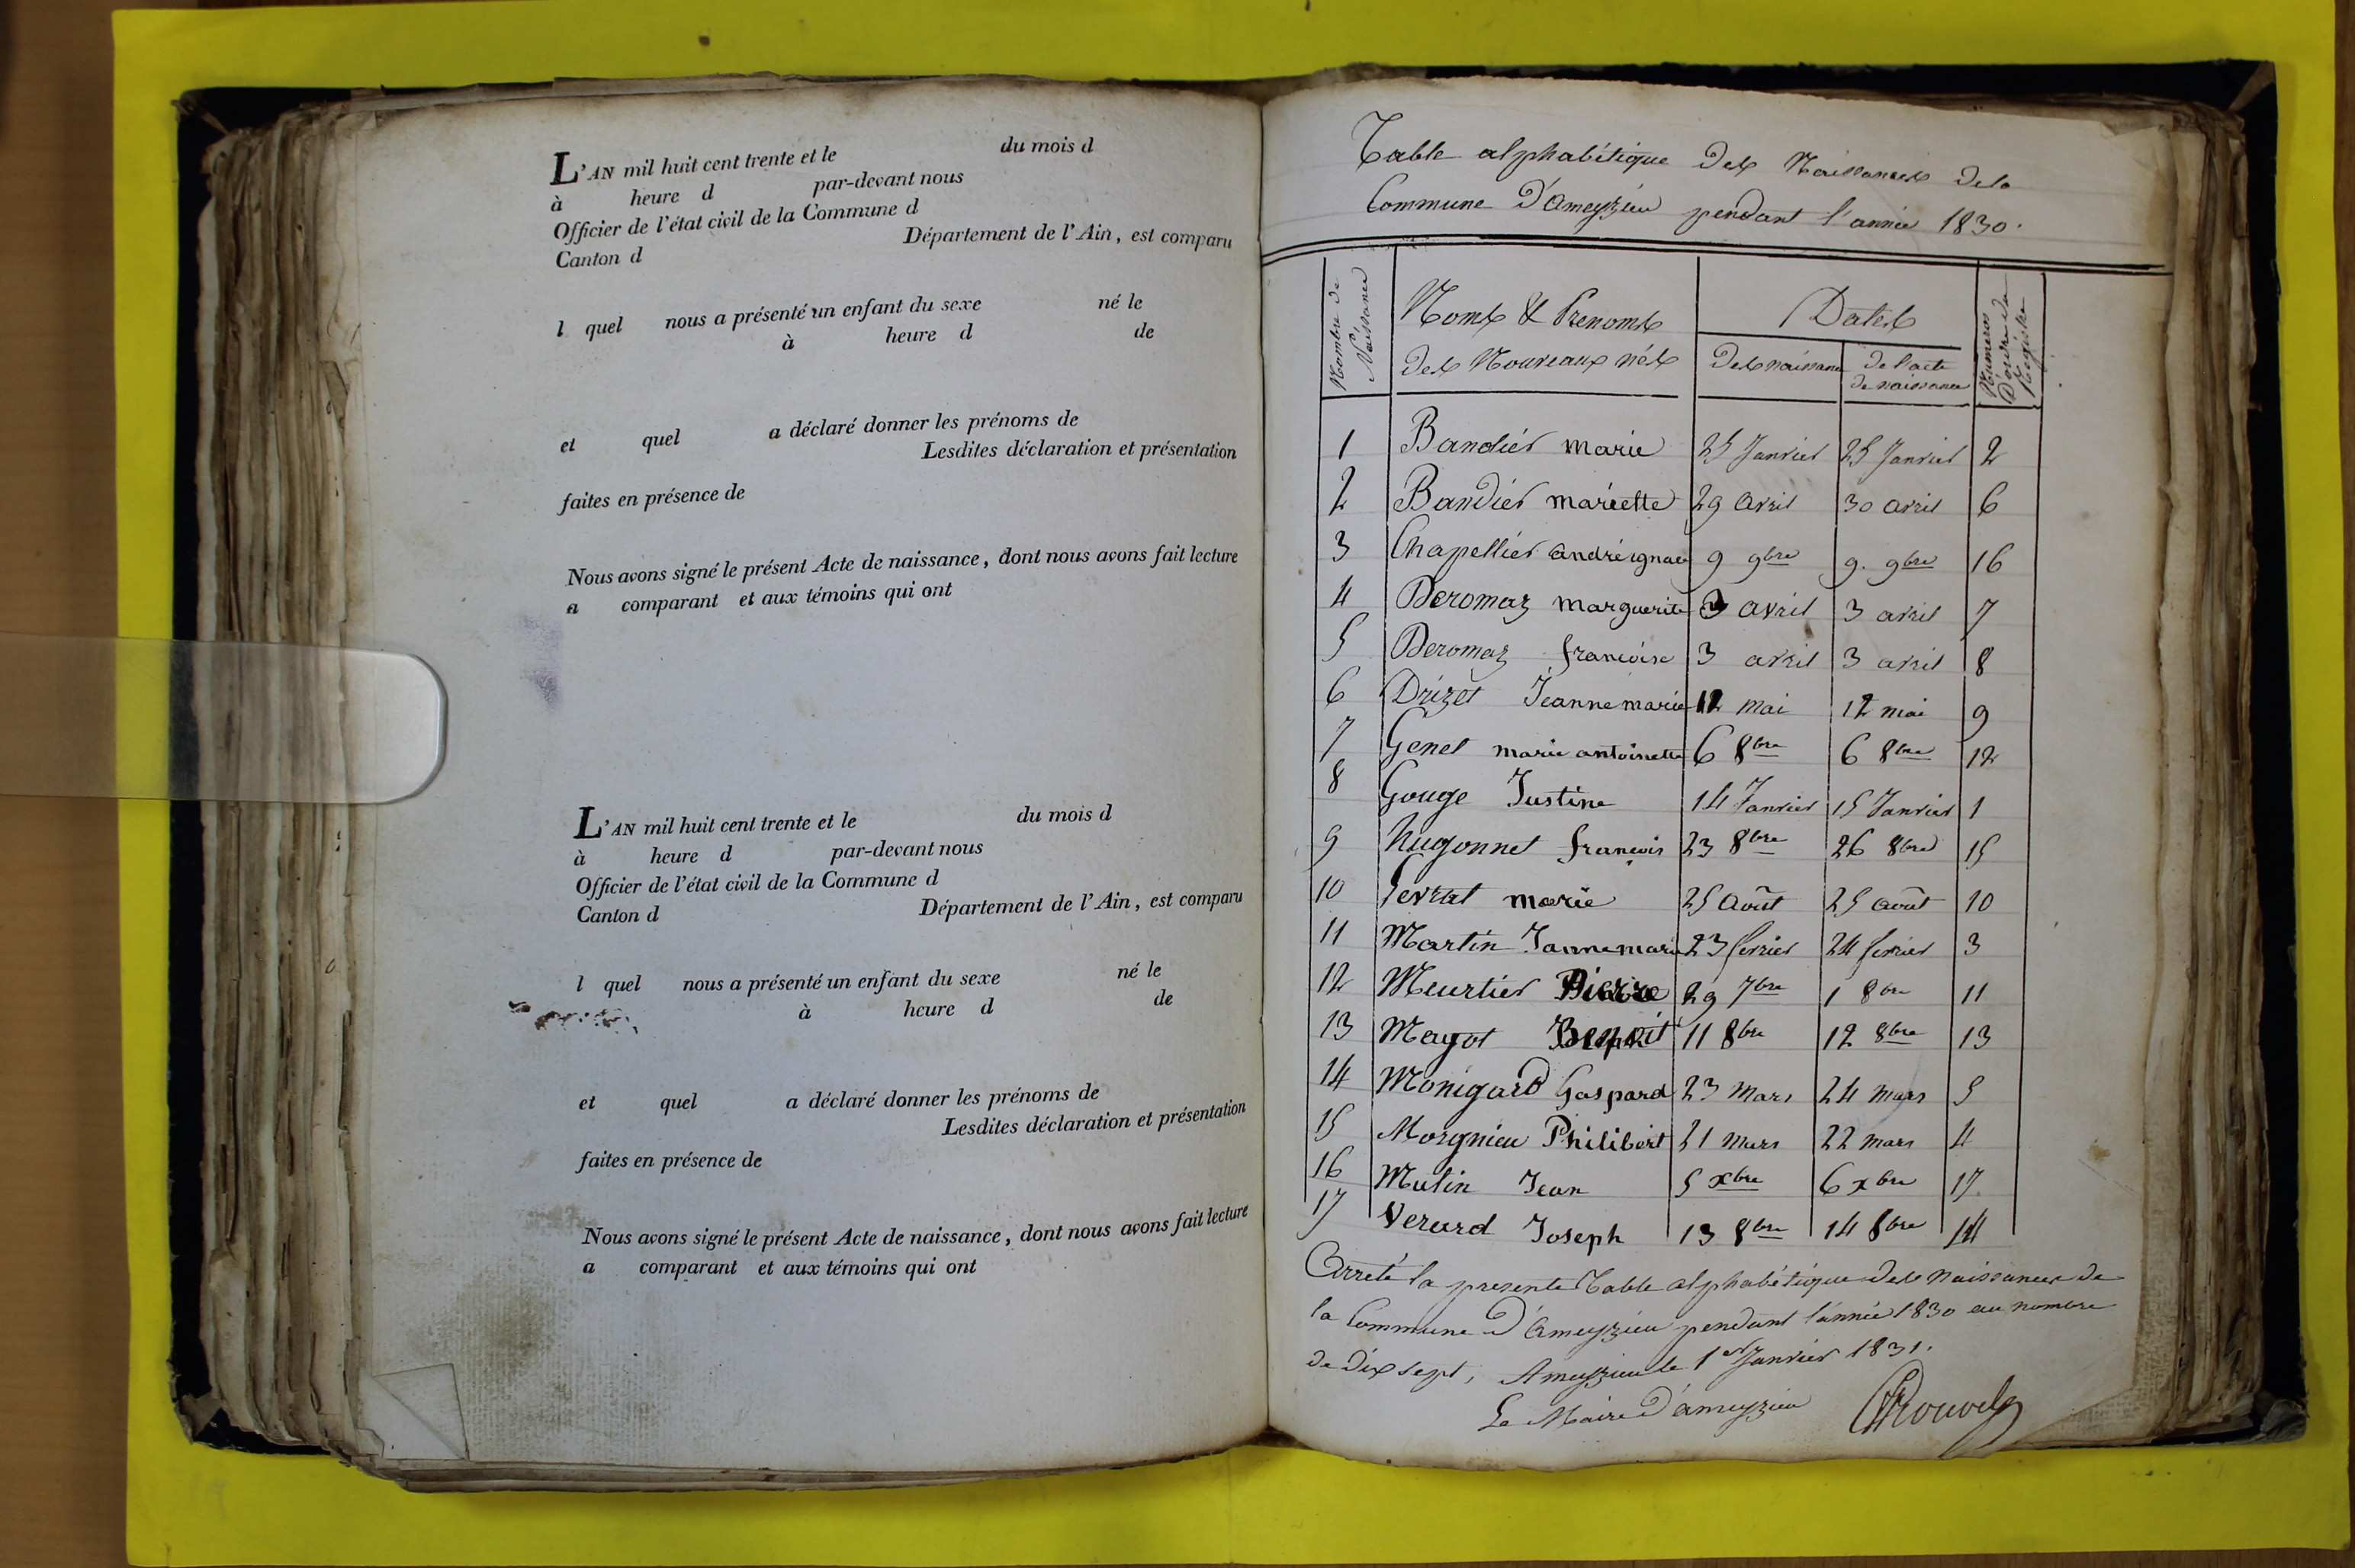 L'AN mil huit cent trente et le du mois d
à heure d par-devant nous
Officier de l'état civil de la Commune d
Canton d Département de l'Ain, est comparu
l quel nous a présenté un enfant du sexe né le
à heure d de
et quel a déclaré donner les prénoms de
Lesdites déclaration et présentation
faites en présence de
Nous avons signé le présent Acte de naissance, dont nous avons fait lecture
a comparant et aux témoins qui ont
L'AN mil huit cent trente et le du mois d
à heure d par-devant nous
Officier de l'état civil de la Commune d
Canton d Département de l'Ain, est comparu
l quel nous a présenté un enfant du sexe né le
à heure d de
et quel a déclaré donner les prénoms de
Lesdites déclaration et présentation
faites en présence de
Nous avons signé le présent Acte de naissance, dont nous avons fait lecture
a comparant et aux témoins qui ont
Table alphabétique des Naissances de la
Commune d'Ameyzieu pendant l'année 1830.
Nombre de Naissances
Noms & Prenoms
des Nouveaux nés
Dates
des naissance
de l'acte
de naissance
Numeros d'ordre du Registre
1 Bandier marie 25 Janvier 25 Janvier 2
2 Bandier mariette 29 avril 30 avril 6
3 Chapellier andré ignace 9 9bre 9. 9bre 16
4 Deromaz marguerite 3 avril 3 avril 7
5 Deromaz francoise 3 avril 3 avril 8
6 Drizet Jeanne marie 12 mai 12 mai 9
7 Genet marie antoinette 6 8bre 6 8bre 12
8 Gouge Justine 14 Janvier 15 Janvier 1
9 hugonnet francois 23 8bre 26 8bre 15
10 Levrat marie 25 août 25 août 10
11 Martin Janne marie 23 fevrier 24 fevrier 3
12 Meurtier Pierre 29 7bre 1 8bre 11
13 Mayot Benoit 11 8bre 12 8bre 13
14 Monigard Gaspard 23 mars 24 mars 5
15 Morgnieu Philibert 21 mars 22 mars 4
16 Mutin Jean 5 xbre 6 xbre 17.
17 Verard Joseph 13 8bre 14 8bre 14
Arreté la presente Table alphabétique des naissances de
la Commune d'ameyzieu pendant l'année 1830 au nombre
de dix sept, Ameyzieu le 1er Janvier 1831.
Le Maire d'ameyzieu